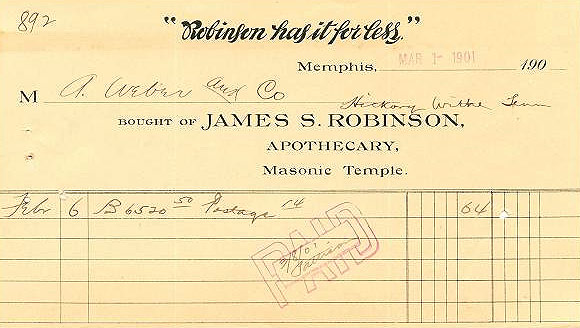 892
"Robinson has it for less."
Memphis, MAR 1- 1901 190
M A. Weber and Co
Hickory Withe Tenn
BOUGHT OF JAMES S. ROBINSON,
APOTHECARY,
Masonic Temple.
Febr 6 B6520 50 Postage 14 64
PAID
3/8/01